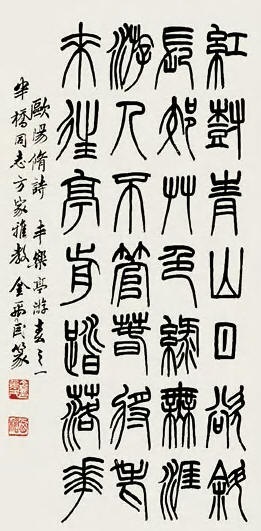 紅樹青山日欲斜
長郊艸色綠無涯
游人不管春將老
來往亭前踏落華
歐陽脩詩 丰樂亭游春之一
半橋同志方家雅教 金禹民篆